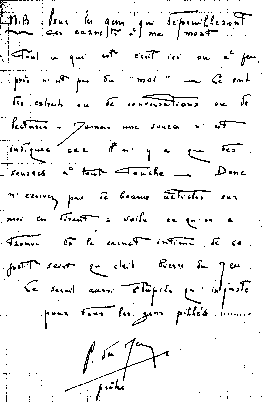 N.B. Pour les gens qui dépouilleront
ces carnets à ma mort
Tout ce qui est écrit ici ou à peu
près n'est pas de "moi" — Ce sont
des extraits ou de conversations ou de
lectures — Jamais une source n'est
indiquée car il n'y a que des
sources à tout — Donc
n'écrivez pas de beaux articles sur
moi en disant : voilà ce qu'on a
trouvé de le carnet intime de ce
petit saint qu'était Pierre du Jeu
Ce serait aussi stupide qu'injuste
pour tous les gens pillés .........
P. du Jeu
prêtre